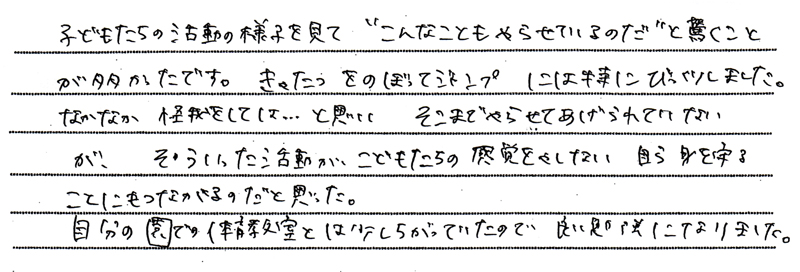 子どもたちの活動の様子を見て “こんなこともやらせているのだ”と驚くこと
が多かったです。 きゃたつをのぼってジャンプ には特にびっくりしました。
なかなか 怪我をしては…と思い そこまでやらせてあげられていない
が、 そういった活動が、こどもたちの感覚をやしない 自ら身を守る
ことにもつながるのだと思った。
自分の園での体育教室とは少しちがっていたので 良い勉強になりました。